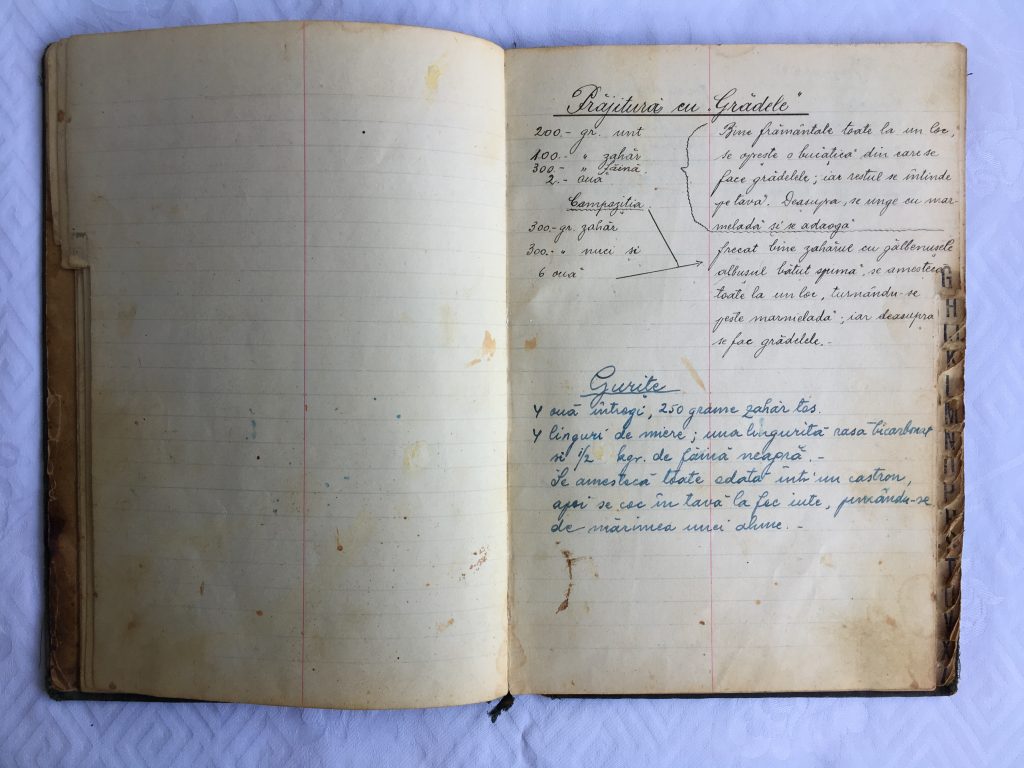 Prăjitură cu "Grădele"
200.- gr. unt
100.- " zahăr
300.- " făină.
2.- ouă
Compoziția.
300.- gr. zahăr
300.- " nuci si
6 ouă
Bine frământate toate la un loc,
se oprește o bucățică din care se
face grădelele; iar restul se întinde
pe tavă. Deasupra, se unge cu mar
meladă și se adaogă
frecat bine zahărul cu gălbenușele
albușul bătut spumă, se amestecă
toate la un loc, turnându-se
peste marmeladă; iar deasupra
se fac grădelele.-
Gurițe
4 ouă întregi, 250 grame zahăr tos.
4 linguri de miere; una linguriță rasa bicarbonat
si 1/2 kgr. de făină neagră.-
Se amestecă toate odata într'un castron,
apoi se coc în tavă la foc iute, punându-se
de mărimea unei alune.-
G
H
K
L
M
N
O
P
R
T